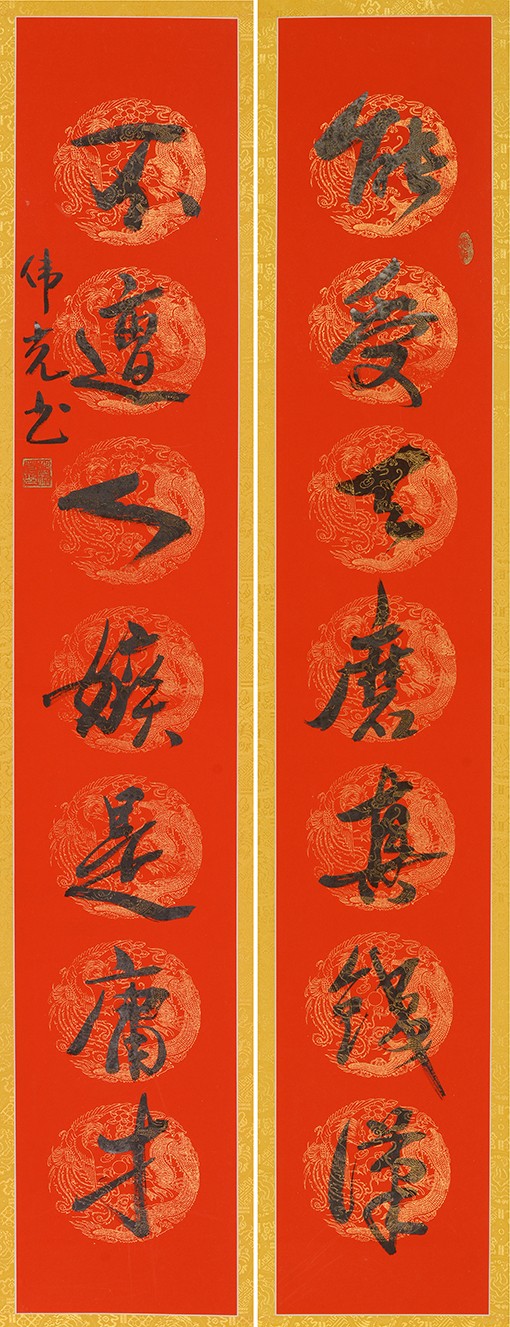 能受天磨真鐵漢
不遭人嫉是庸才
伟光书